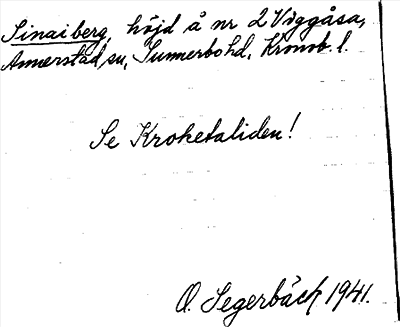 Sinaiberg, höjd å nr 2 Viggåsa,
Annerstad sn, Sunnerbo hd, Kronob. l.
Se Kroketaliden!
O. Segerbäck 1941.